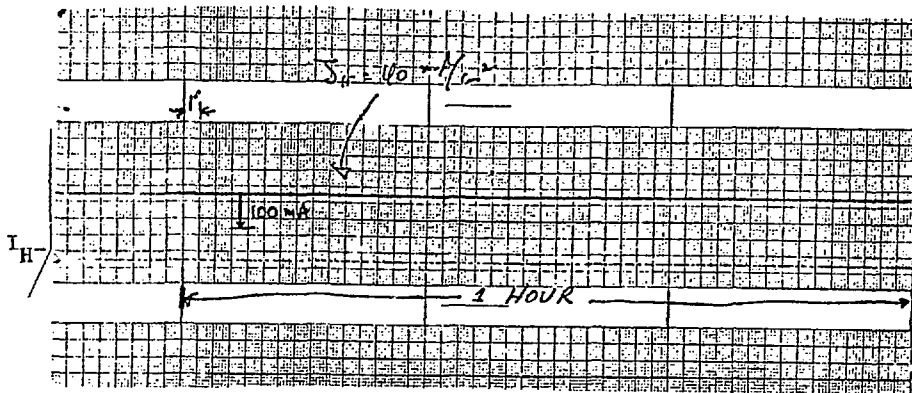 J_H- = 40 mA/cm²
1'
100 mA
I_H-
1 HOUR